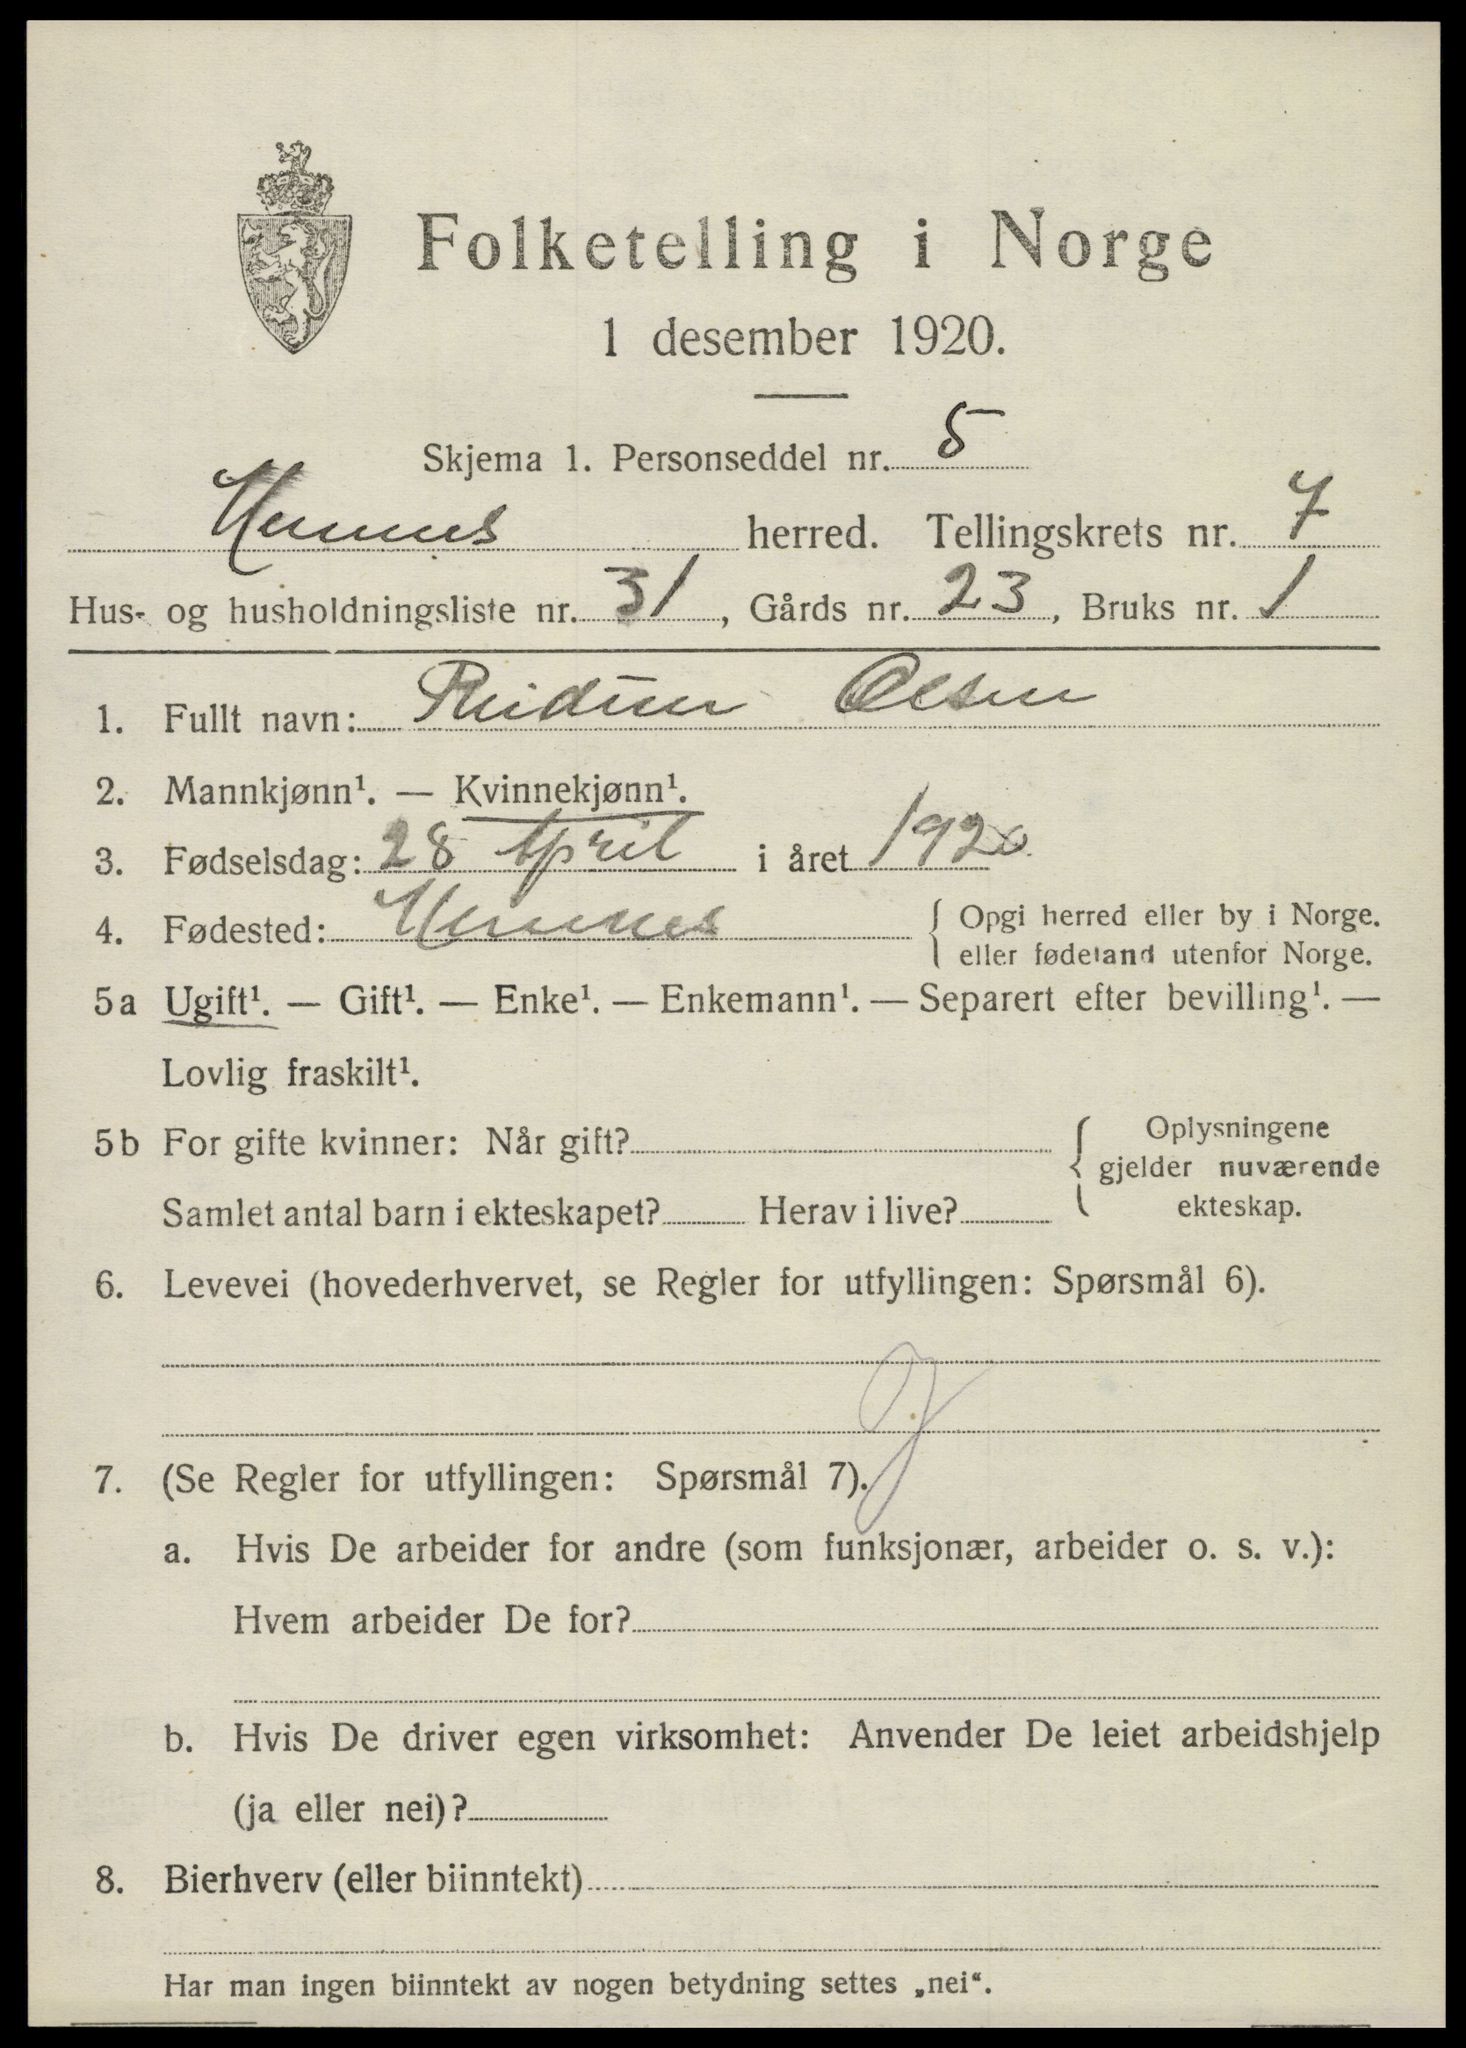 Folketelling i Norge
1 desember 1920.
Skjema 1. Personseddel nr. 5
Hemnes herred. Tellingskrets nr. 7
Hus- og husholdningsliste nr. 31, Gårds nr. 23, Bruks nr. 1
1. Fullt navn: Reidun Olsen
2. Mannkjønn¹. — Kvinnekjønn¹.
3. Fødselsdag: 28 April i året 1920
4. Fødested: Hemnes { Opgi herred eller by i Norge.
eller fødeland utenfor Norge.
5a Ugift¹. — Gift¹. — Enke¹. — Enkemann¹. — Separert efter bevilling¹. —
Lovlig fraskilt¹.
5b For gifte kvinner: Når gift? { Oplysningene
gjelder nuværende
Samlet antal barn i ekteskapet? Herav i live? ekteskap.
6. Levevei (hovederhvervet, se Regler for utfyllingen: Spørsmål 6).
7. (Se Regler for utfyllingen: Spørsmål 7).
a. Hvis De arbeider for andre (som funksjonær, arbeider o. s. v.):
Hvem arbeider De for?
b. Hvis De driver egen virksomhet: Anvender De leiet arbeidshjelp
(ja eller nei)?
8. Bierhverv (eller biinntekt)
Har man ingen biinntekt av nogen betydning settes „nei“.